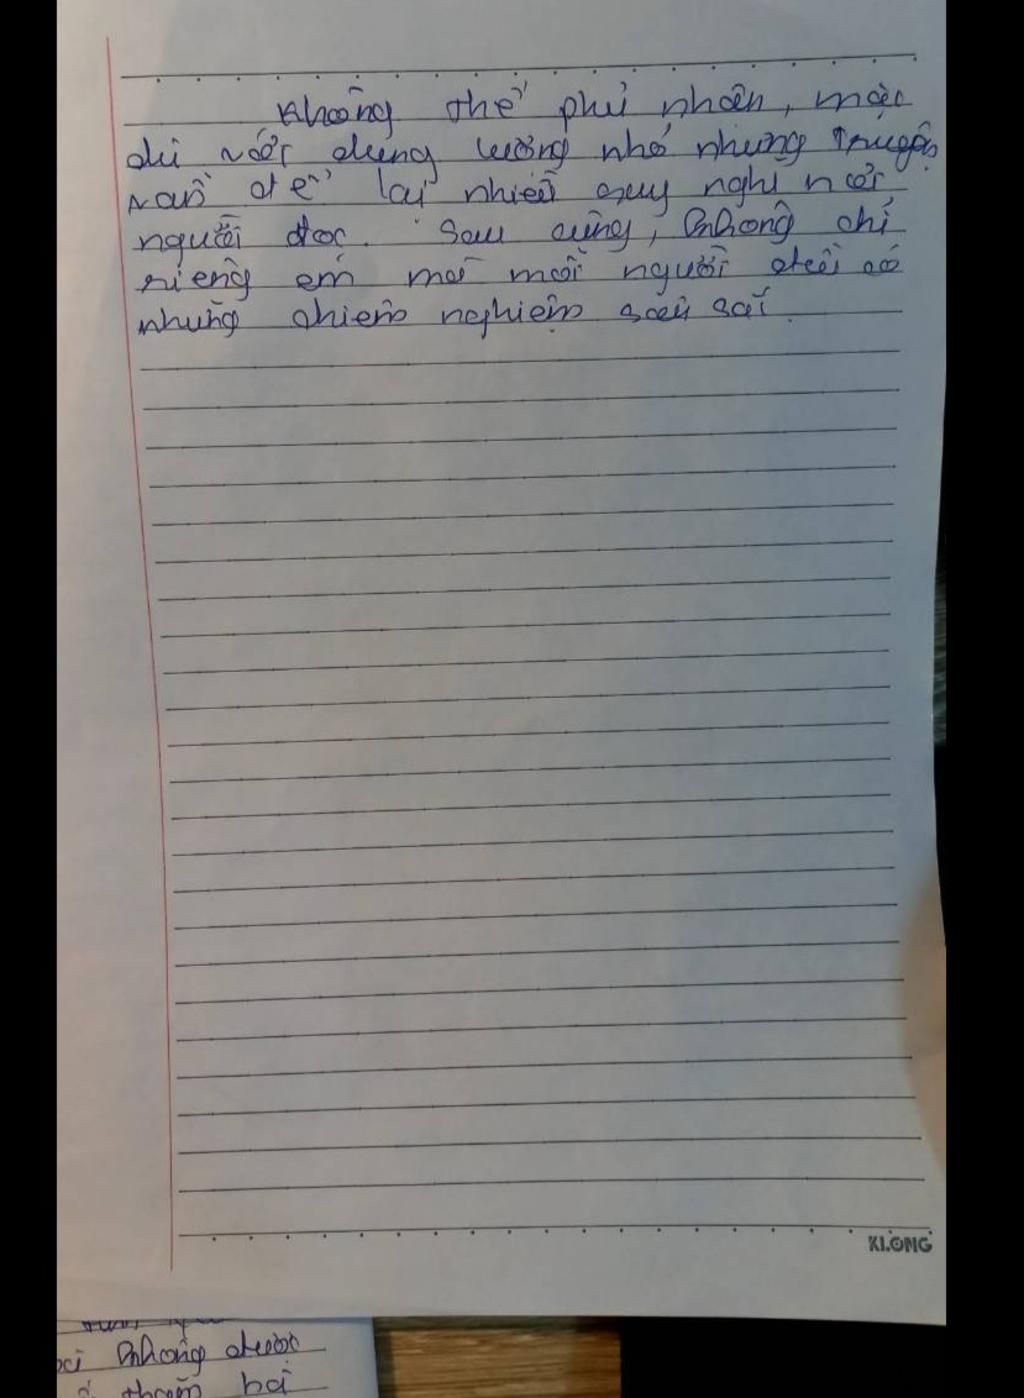 Không thể phủ nhân, mặc
dù với dung lượng nhỏ nhưng truyện
vẫn để lại nhiều suy nghĩ nơi
người đọc. Sau cùng, không chỉ
riêng em mà mỗi người đều có
những chiêm nghiệm sâu sắc.
KLONG
không được
thoại bài